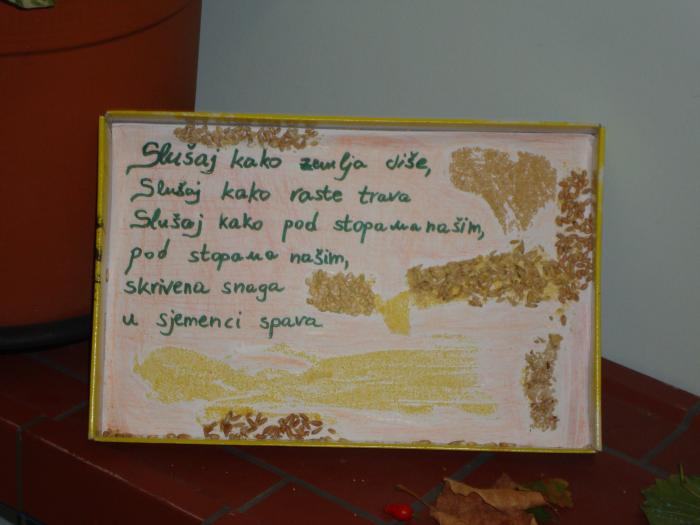 Slušaj kako zemlja diše,
Slušaj kako raste trava
Slušaj kako pod stopama našim,
pod stopama našim,
skrivena snaga
u sjemenci spava